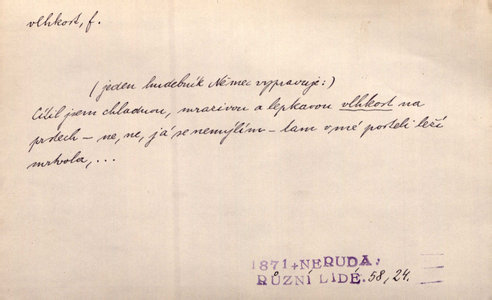 vlhkost, f.
(jeden hudebník Němec vypravuje:)
Cítil jsem chladnou, mrazivou a lepkavou vlhkost na
prstech – ne, ne, já se nemýlím – tam v mé posteli leží
mrtvola, ...
1871 + NERUDA,
RŮZNÍ LIDÉ. 58, 24.